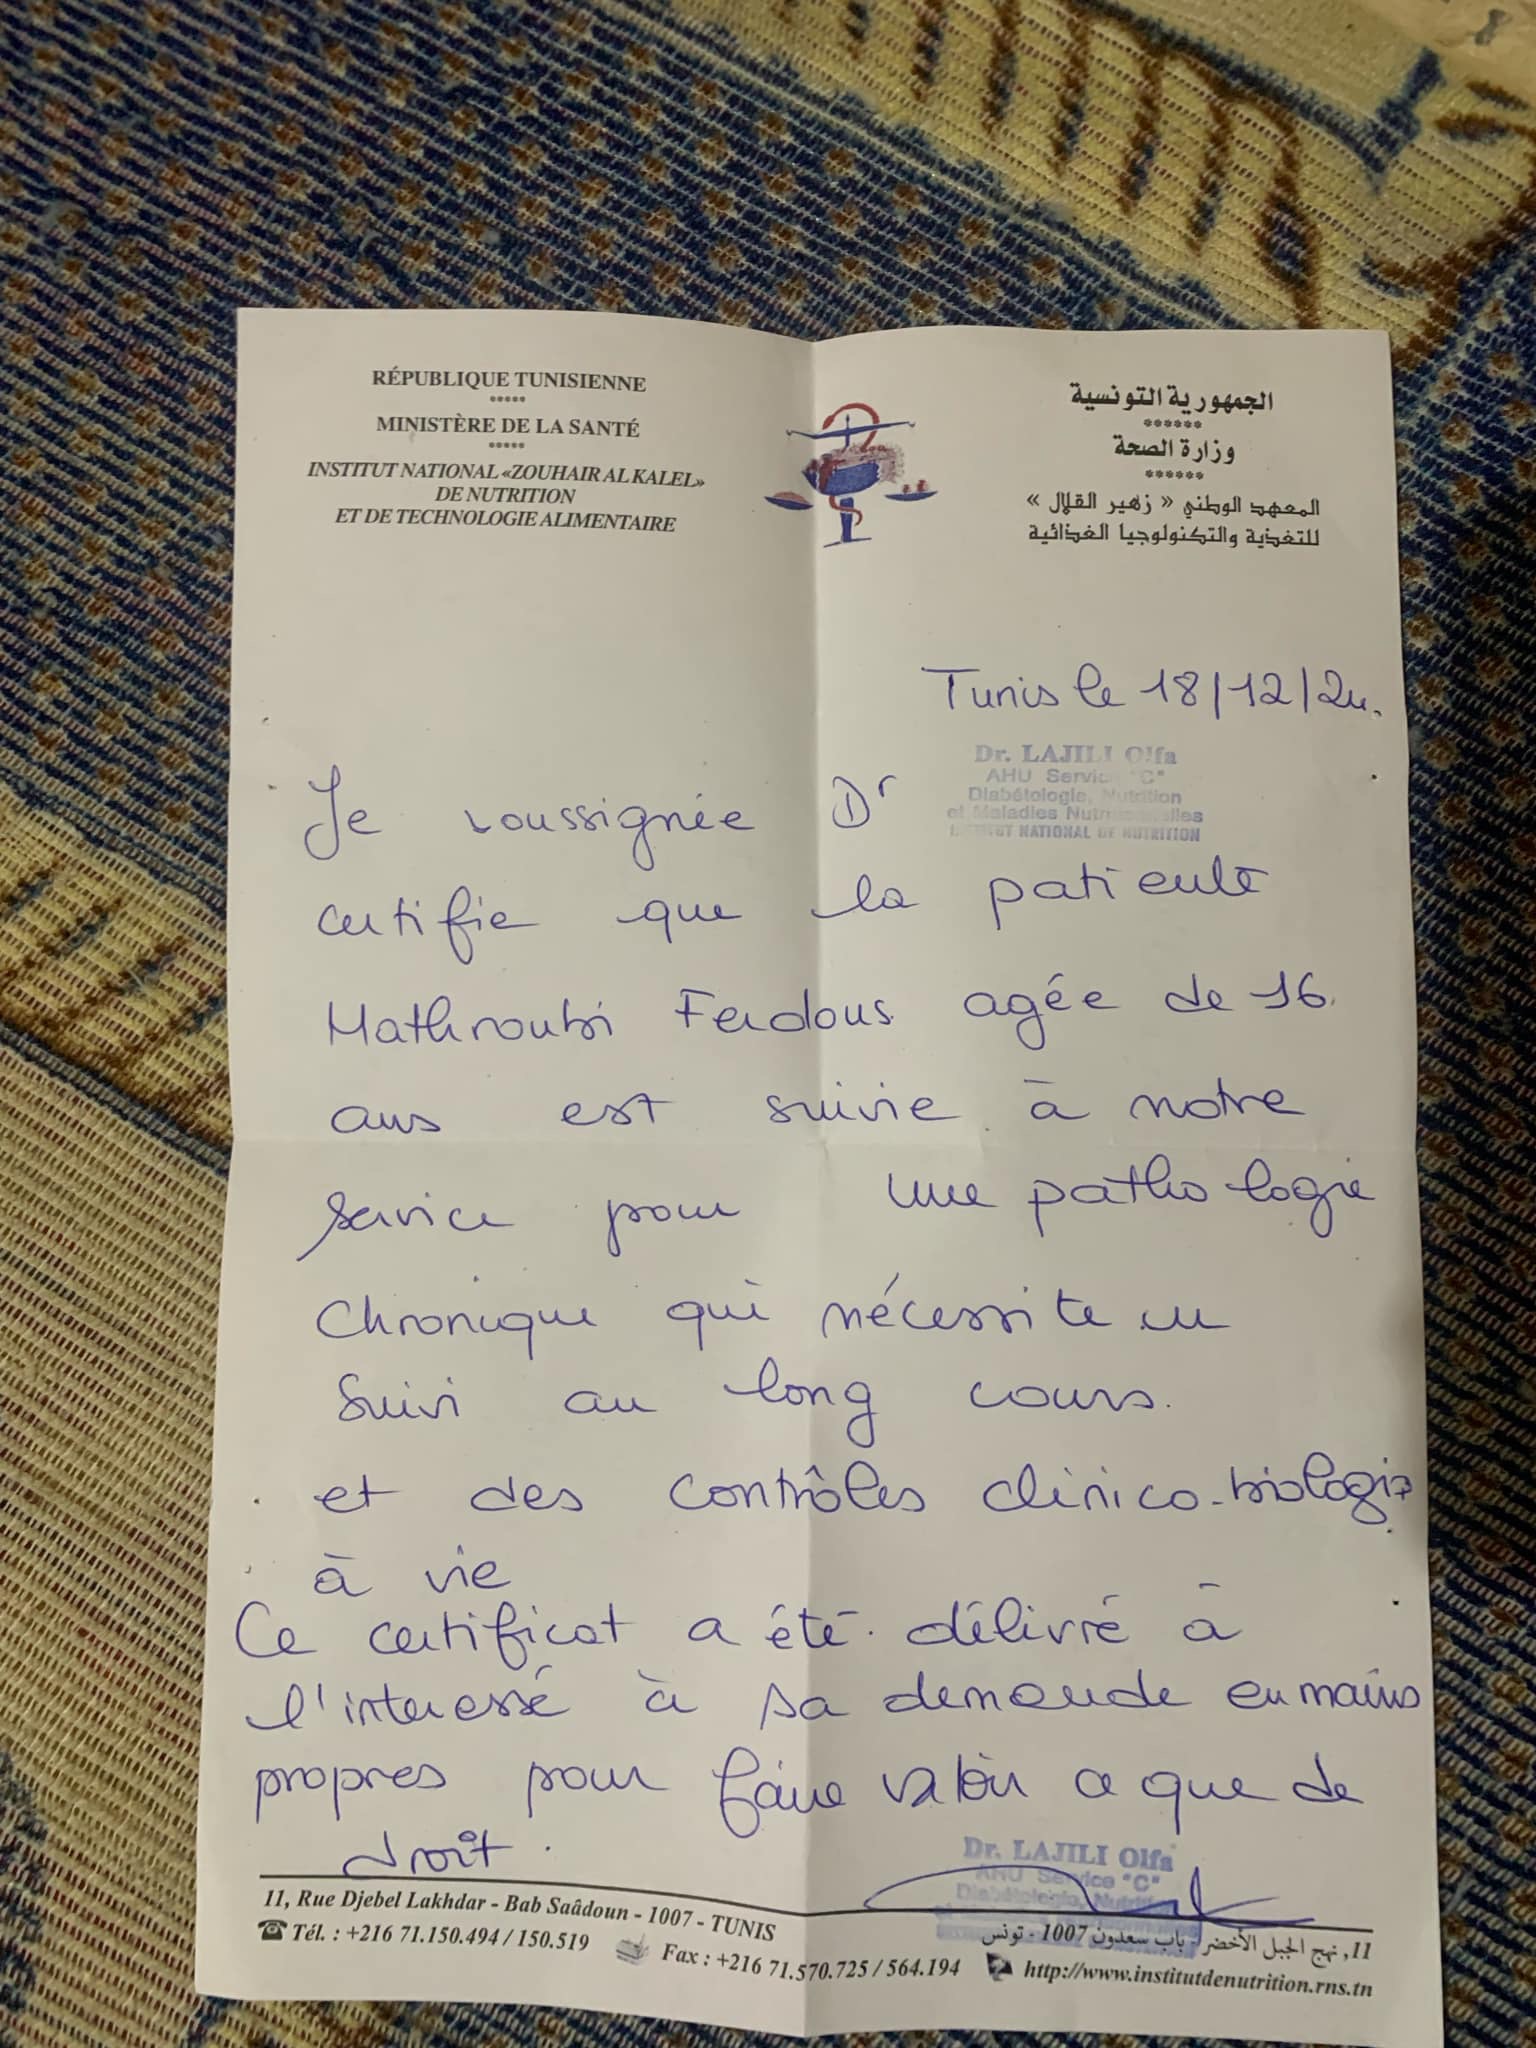 RÉPUBLIQUE TUNISIENNE
*****
MINISTÈRE DE LA SANTÉ
*****
INSTITUT NATIONAL «ZOUHAIR AL KALEL»
DE NUTRITION
ET DE TECHNOLOGIE ALIMENTAIRE
الجمهورية التونسية
******
وزارة الصحة
******
المعهد الوطني « زهير القلال »
للتغذية والتكنولوجيا الغذائية
Tunis le 18/12/24.
Dr. LAJILI Olfa
AHU Service "C"
Diabétologie, Nutrition
et Maladies Nutritionnelles
INSTITUT NATIONAL DE NUTRITION
Je soussignée Dr
certifie que la patiente
Mathroubi Ferdous agée de 16
ans est suivie à notre
service pour une pathologie
chronique qui nécessite un
suivi au long cours.
et des contrôles clinico-biologiq
à vie
Ce certificat a été délivré à
l'interessé à sa demande en mains
propres pour faire valoir ce que de
droit.
Dr. LAJILI Olfa
AHU Service "C"
Diabétologie, Nutrition
11, Rue Djebel Lakhdar - Bab Saâdoun - 1007 - TUNIS
Tél. : +216 71.150.494 / 150.519
Fax : +216 71.570.725 / 564.194
11, نهج الجبل الأخضر - باب سعدون 1007 - تونس
http://www.institutdenutrition.rns.tn